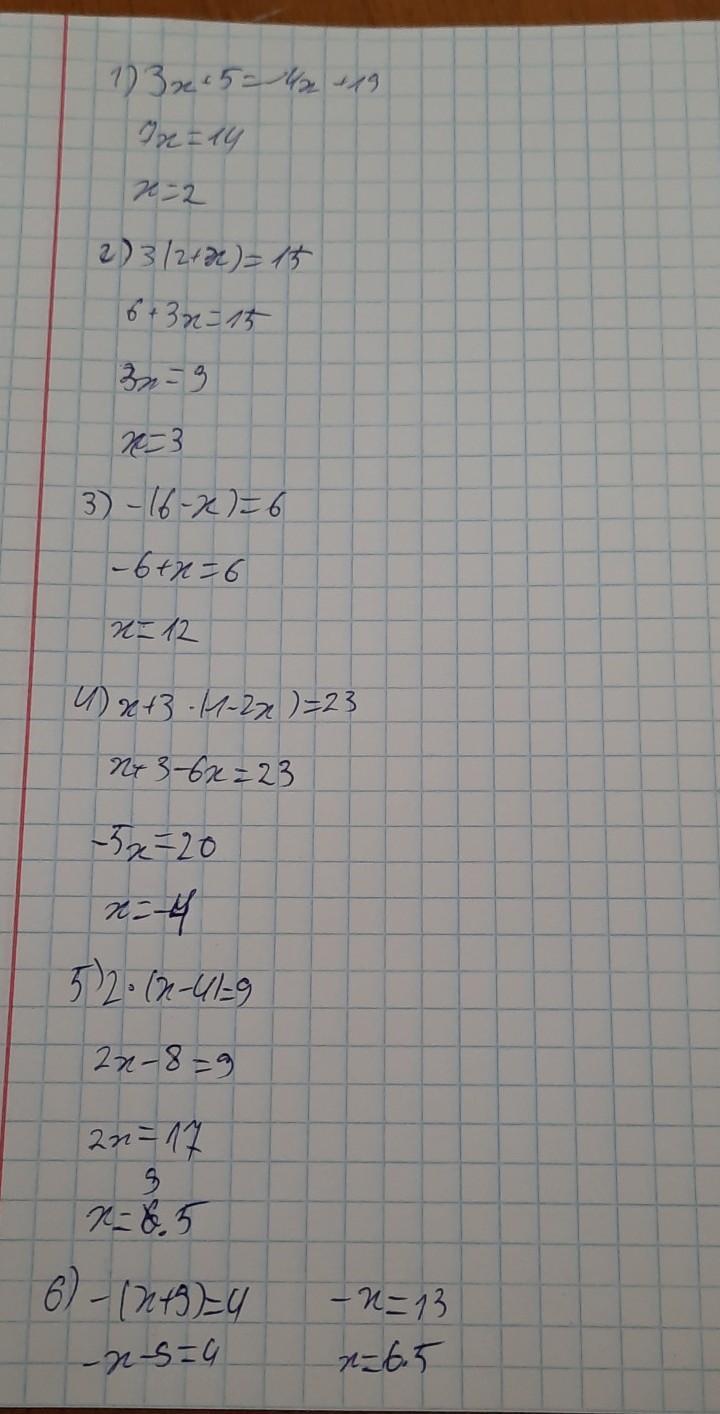 1) 3x+5=-4x+19
7x=14
x=2
2) 3(2+x)=15
6+3x=15
3x=9
x=3
3) -(6-x)=6
-6+x=6
x=12
4) x+3·(1-2x)=23
x+3-6x=23
-5x=20
x=-4
5) 2·(x-4)=9
2x-8=9
2x=17
9
x=6.5
6) -(x+9)=4
-x-9=4
-x=13
x=6.5